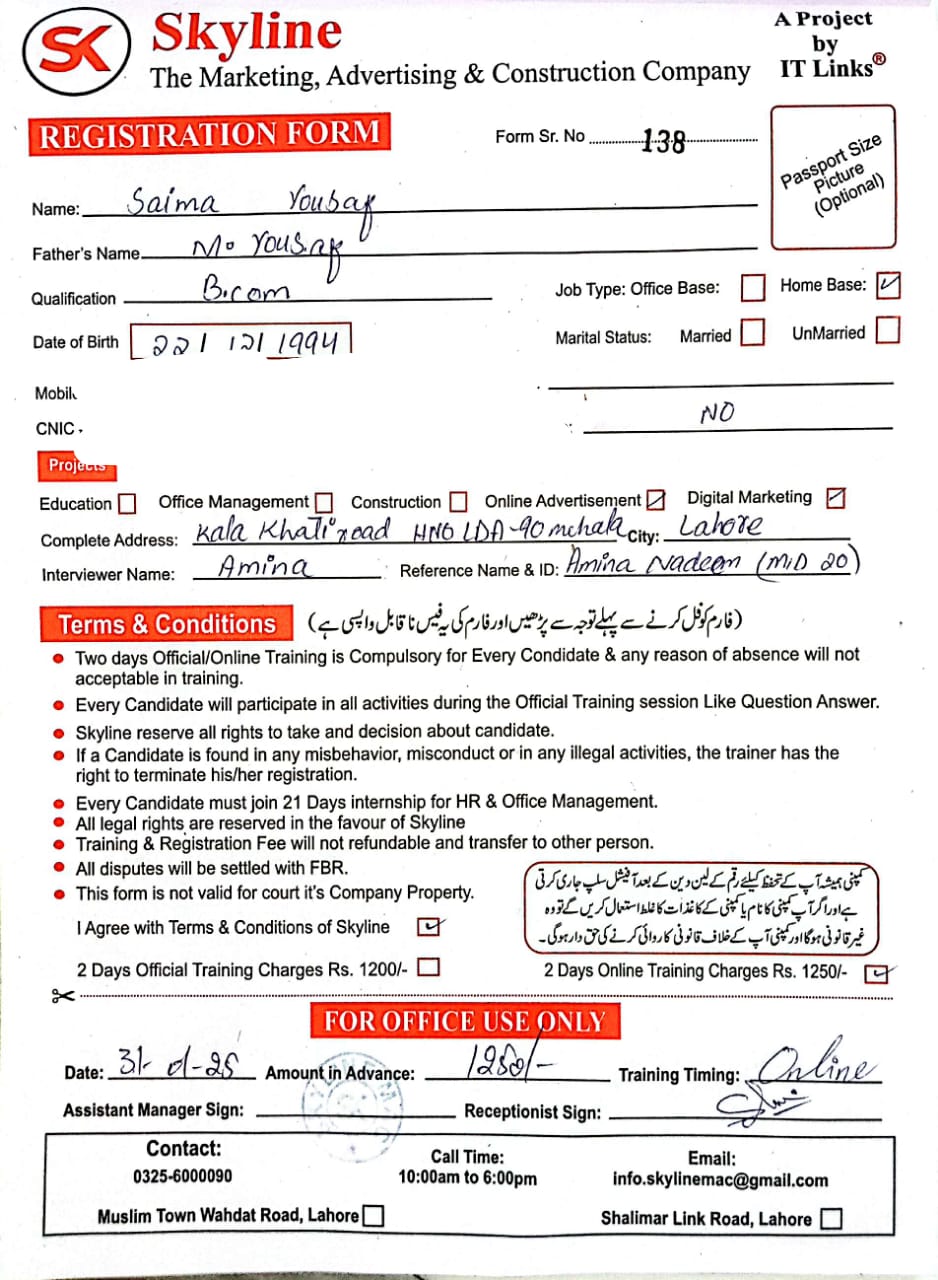 SK
Skyline
The Marketing, Advertising & Construction Company
A Project
by
IT Links®
REGISTRATION FORM
Form Sr. No 138
Passport Size
Picture
(Optional)
Name: Saima Yousaf
Father's Name M. Yousaf
Qualification B.com
Job Type: Office Base: Home Base: ✓
Date of Birth 22/ 12/ 1994
Marital Status: Married UnMarried
Mobil
CNIC NO
Projects
Education Office Management Construction Online Advertisement ✓ Digital Marketing ✓
Complete Address: Kala Khati road HNO LDA-90 City: Lahore
Interviewer Name: Amina Reference Name & ID: Amina Nadeem (MiD 20)
Terms & Conditions (فارم کو فل کرنے سے پہلے توجہ سے پڑھیں اور فارم کی یہ فیس ناقابل واپسی ہے)
• Two days Official/Online Training is Compulsory for Every Condidate & any reason of absence will not
acceptable in training.
• Every Candidate will participate in all activities during the Official Training session Like Question Answer.
• Skyline reserve all rights to take and decision about candidate.
• If a Candidate is found in any misbehavior, misconduct or in any illegal activities, the trainer has the
right to terminate his/her registration.
• Every Candidate must join 21 Days internship for HR & Office Management.
• All legal rights are reserved in the favour of Skyline
• Training & Registration Fee will not refundable and transfer to other person.
• All disputes will be settled with FBR.
• This form is not valid for court it's Company Property.
کمپنی ہمیشہ آپ کے تحفظ کیلئے رقم کے لین دین کے بعد آفیشل سلپ جاری کرتی
ہے اور اگر آپ کمپنی کا نام یا کمپنی کے کاغذات کا غلط استعمال کریں گے تو وہ
غیر قانونی ہوگا اور کمپنی آپ کے خلاف قانونی کاروائی کرنے کی حق دار ہوگی۔
I Agree with Terms & Conditions of Skyline ✓
2 Days Official Training Charges Rs. 1200/-
2 Days Online Training Charges Rs. 1250/- ✓
FOR OFFICE USE ONLY
Date: 31-01-25 Amount in Advance: 1250/- Training Timing: Online
Assistant Manager Sign: Receptionist Sign:
Contact:
0325-6000090
Call Time:
10:00am to 6:00pm
Email:
info.skylinemac@gmail.com
Muslim Town Wahdat Road, Lahore
Shalimar Link Road, Lahore